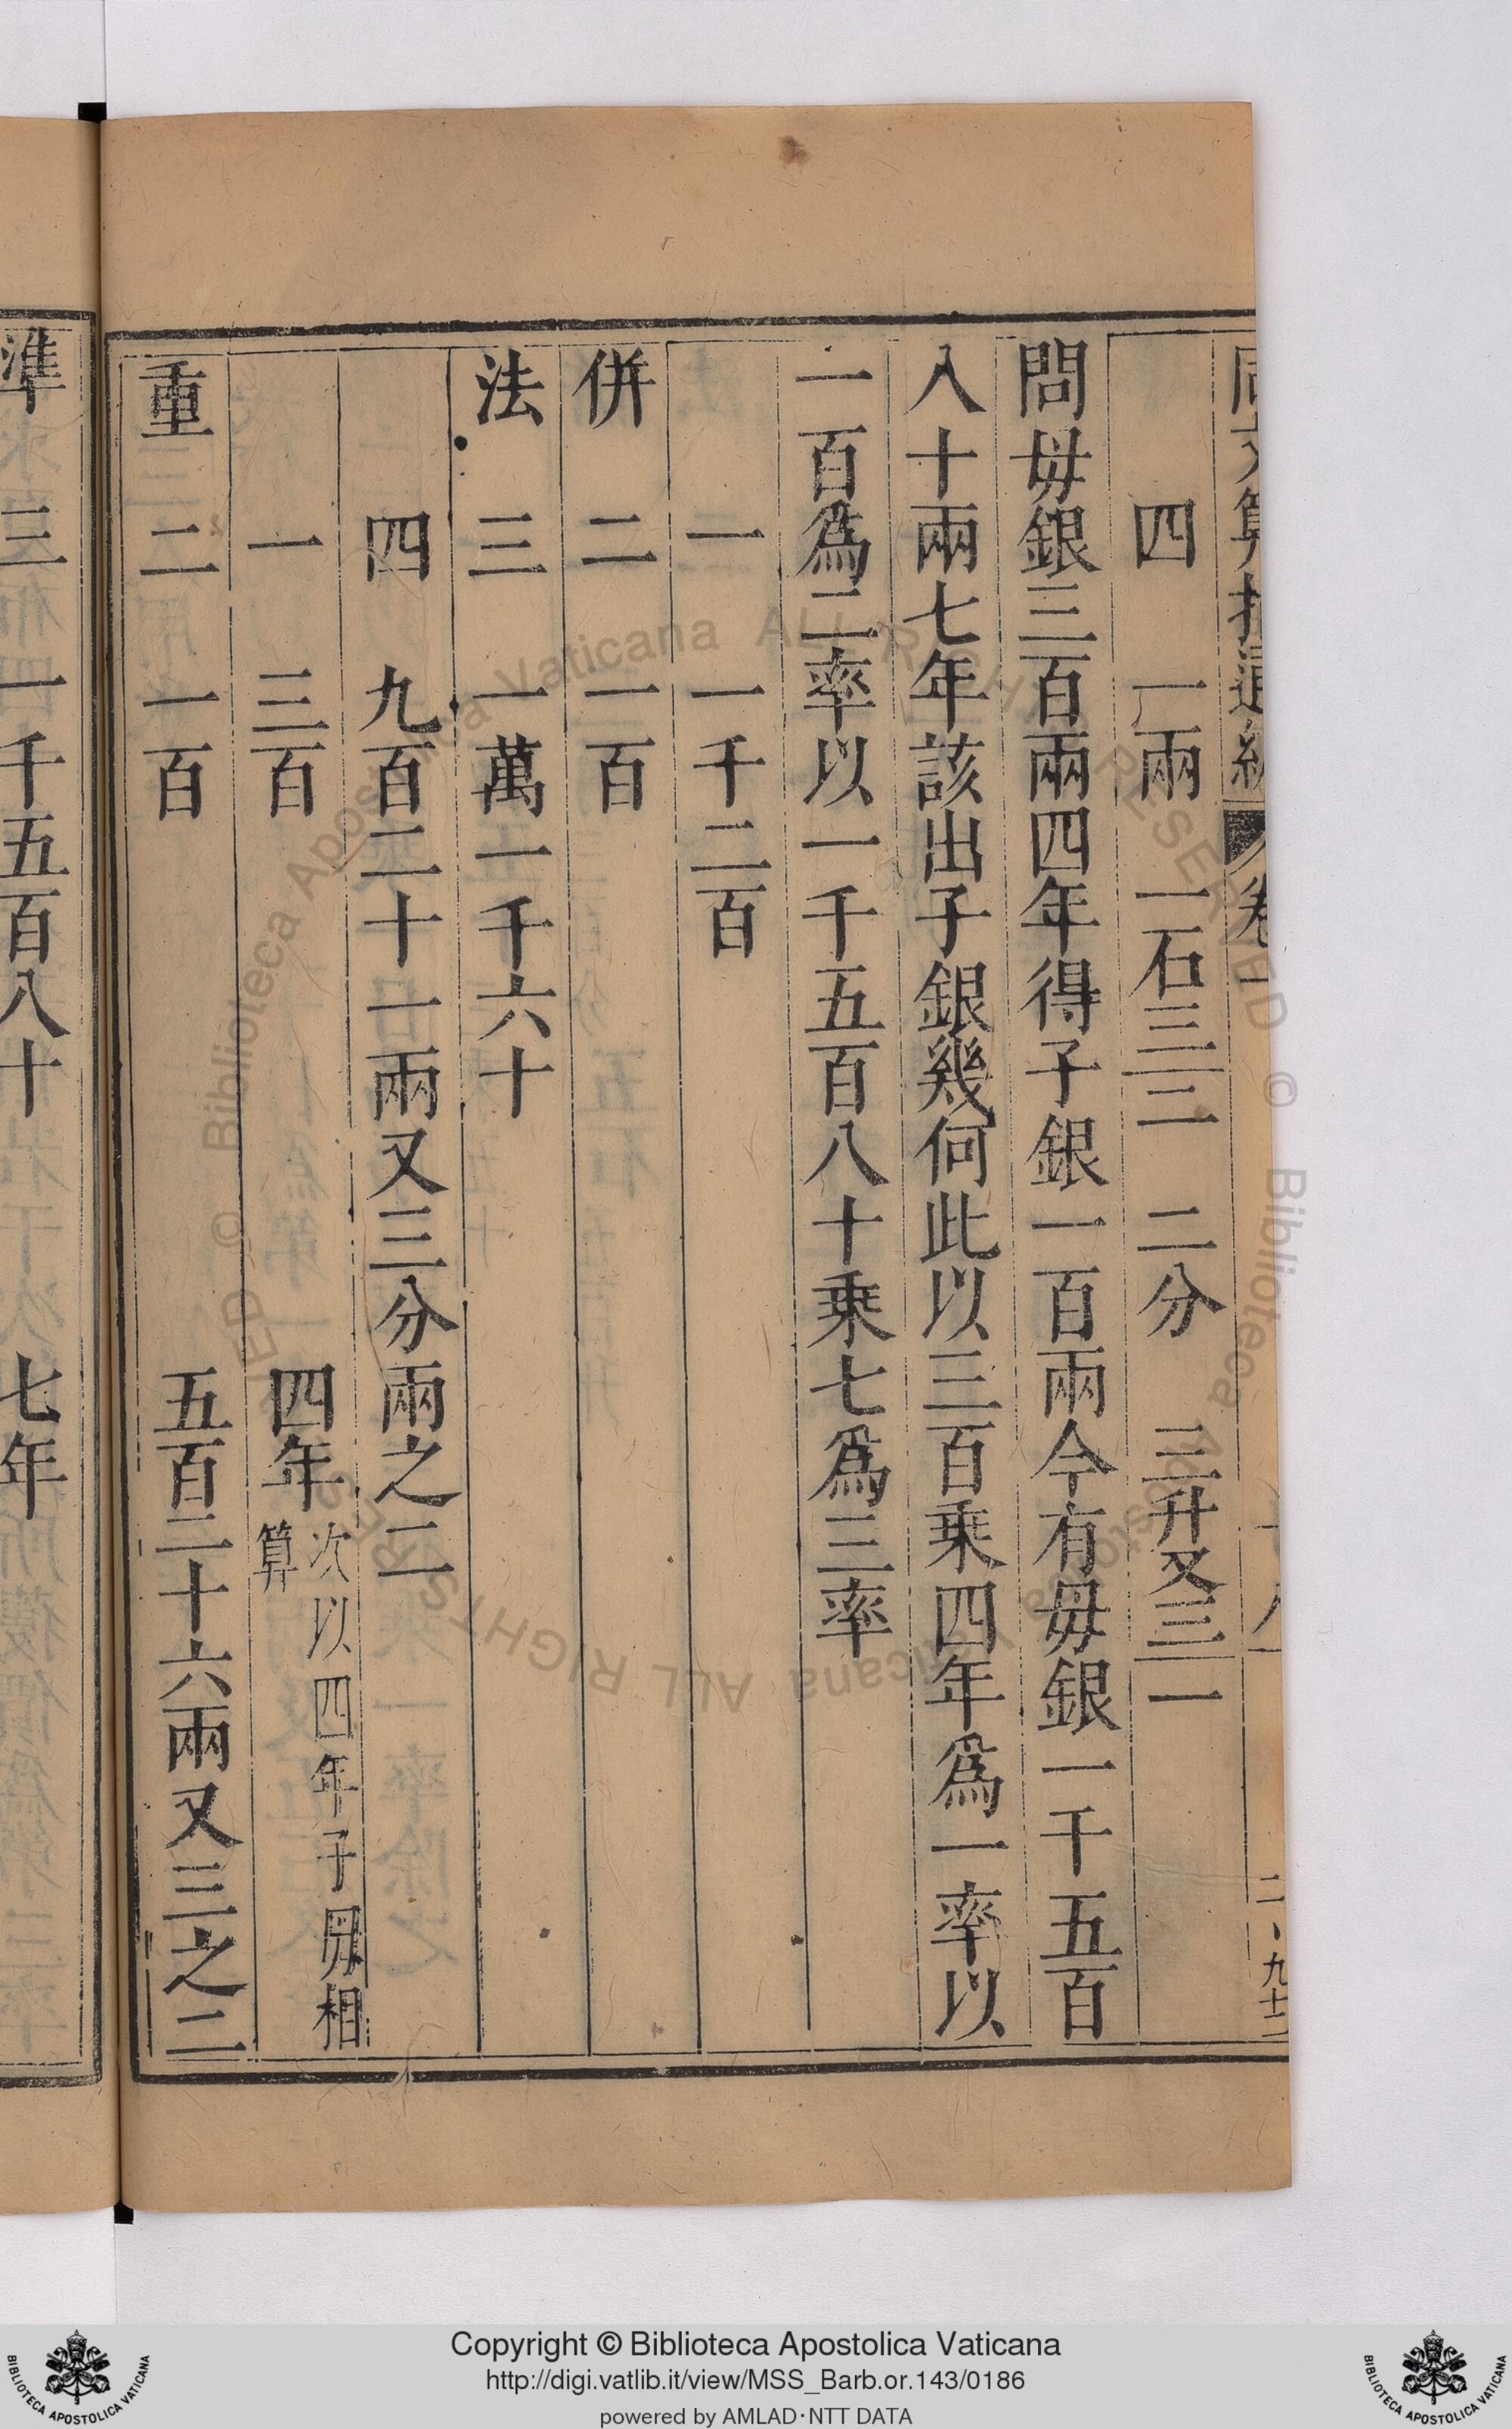 四 一兩 一石三二 二分 三升又三一
問毋銀三百兩四年得子銀一百兩今有毋銀一千五百
八十兩七年該出子銀幾何此以三百乘四年為一率以
一百為二率以一千五百八十乘七為三率
一 一千二百
併 二 一百
法 三 一萬一千六十
四 九百二十一兩又三分兩之二
一 三百 四年 次以四年子毋相算
重 二 一百 五百二十六兩又三之二
準 三 一千五百八十 七年
Copyright © Biblioteca Apostolica Vaticana
http://digi.vatlib.it/view/MSS_Barb.or.143/0186
powered by AMLAD·NTT DATA
BIBLIOTECA APOSTOLICA VATICANA
BIBLIOTECA APOSTOLICA VATICANA